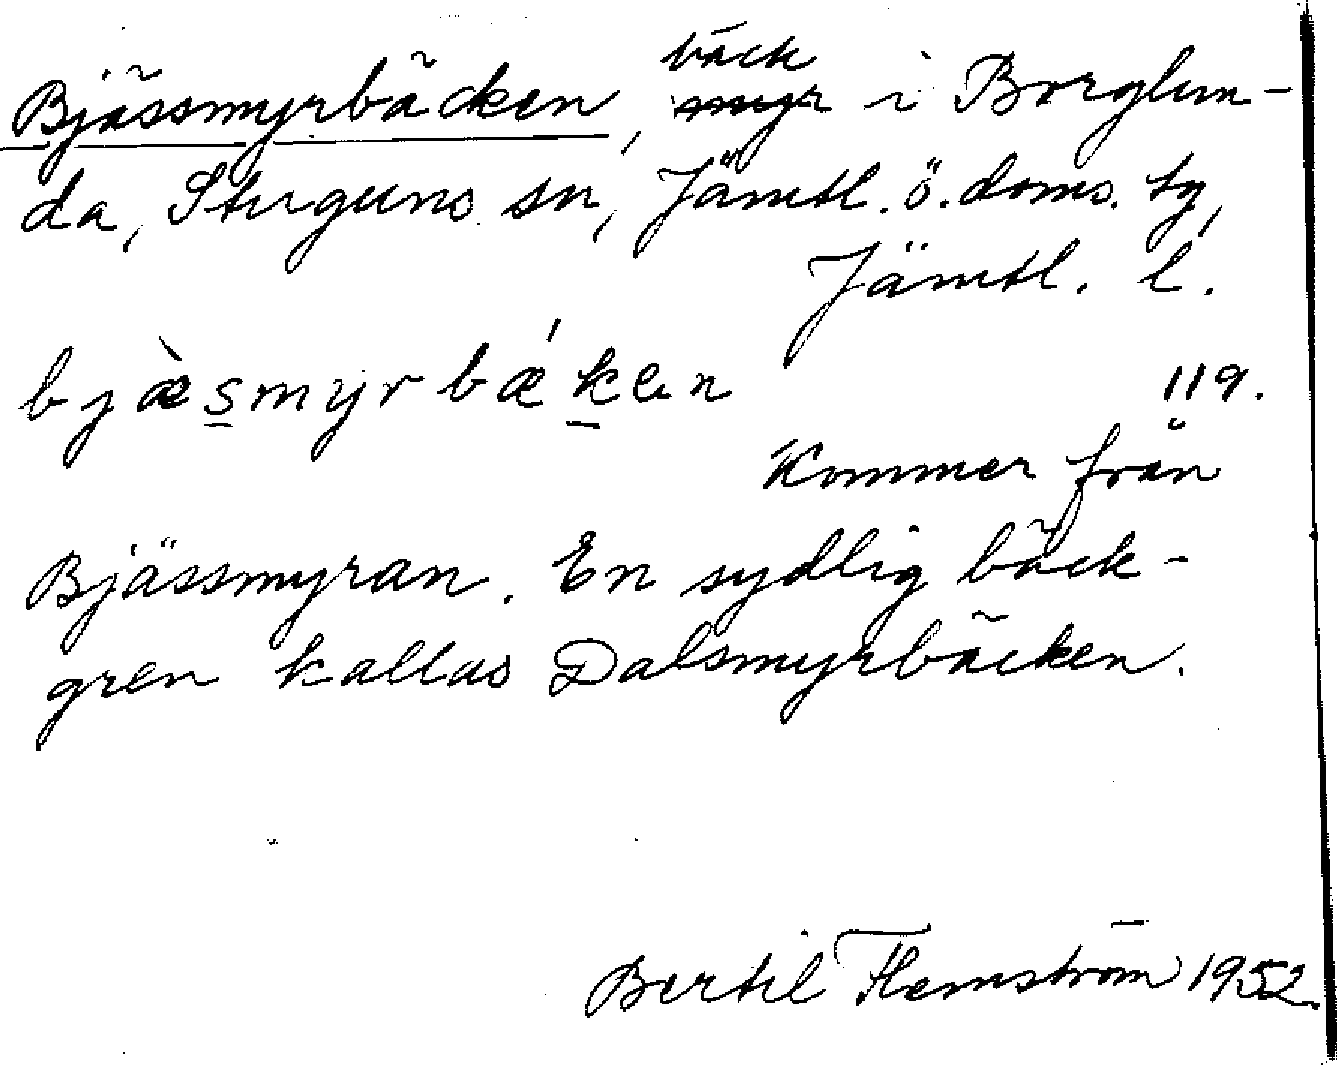 Bjässmyrbäcken, bäck i Borglun-
da, Stuguns sn, Jämtl. ö. doms. tg,
Jämtl. l.
bjæ̀smyrbǽken 119.
Kommer från
Bjässmyran. En sydlig bäck-
gren kallas Dalsmyrbäcken.
Bertil Flemström 1952.